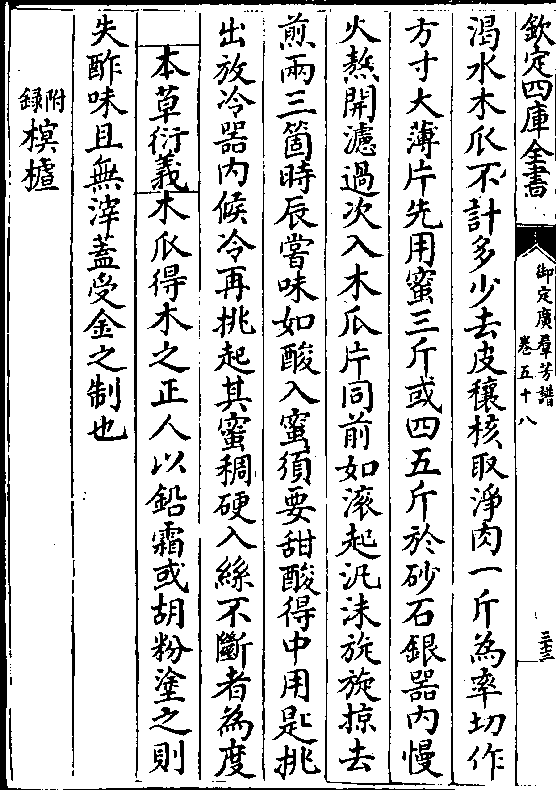 欽定四庫全書
御定廣羣芳譜
卷五十八
三三
渴水木瓜不計多少去皮穰核取淨肉一斤為率切作
方寸大薄片先用蜜三斤或四五斤於砂石銀器内慢
火熬開濾過次入木瓜片同前如滚起汎沫旋旋掠去
煎兩三箇時辰嘗味如酸入蜜須要甜酸得中用匙挑
出放冷器内候冷再挑起其蜜稠硬入絲不斷者為度
本草衍義木瓜得木之正人以鉛霜或胡粉塗之則
失酢味且無滓葢受金之制也
附錄榠樝